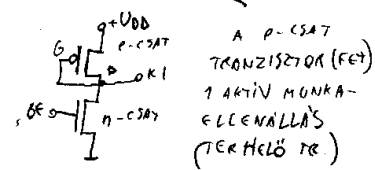 +UDD
G
P-CSAT
D
KI
BE
n-CSAT
A P-CSAT
TRANZISZTOR (FET)
1 AKTÍV MUNKA-
ELLENÁLLÁS
(TERHELŐ TR.)